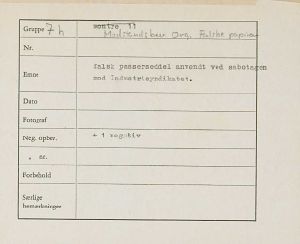 Gruppe 7h
montre 11
Modstandsbev. Org. Falske papirer
Nr.
Emne
falsk passerseddel anvendt ved sabotagen
mod Industrisyndikatet.
Dato
Fotograf
Neg. opbev. + 1 negativ
" nr.
Forbehold
Særlige
bemærkninger